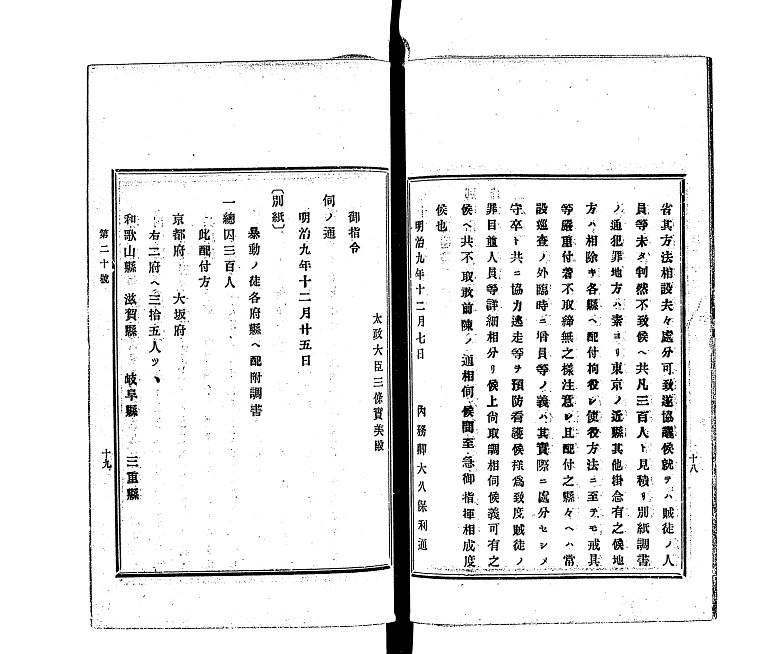 省其方法相設夫々處分可致遂協議候就テハ賊徒ノ人
員等未タ判然不致候ヘ共凡三百人ト見積リ別紙調書
ノ通犯罪地方ハ素ヨリ東京ノ近縣其他掛念有之候地
方ハ相除キ各縣ヘ配付拘役シ使役方法ニ至テモ戒具
等嚴重付着不取締無之樣注意シ且配付之縣々ヘハ常
設巡査ノ外臨時ニ增員等ノ義ハ其實際ニ處分セシメ
守卒ト共ニ協力逃走等ヲ預防看護候樣爲致度賊徒ノ
罪目並人員等詳細相分リ候上尙取調相伺候義可有之
候ヘ共不取敢前陳ノ通相伺候間至急御指揮相成度
候也
明治九年十二月七日
內務卿大久保利通
十八
太政大臣三條實美殿
御指令
伺ノ通
明治九年十二月廿五日
〔別紙〕
暴動ノ徒各府縣ヘ配附調書
一總囚三百人
此配付方
京都府 大坂府
右二府ヘ三拾五人ツヽ
和歌山縣 滋賀縣 岐阜縣 三重縣
第二十號
十九